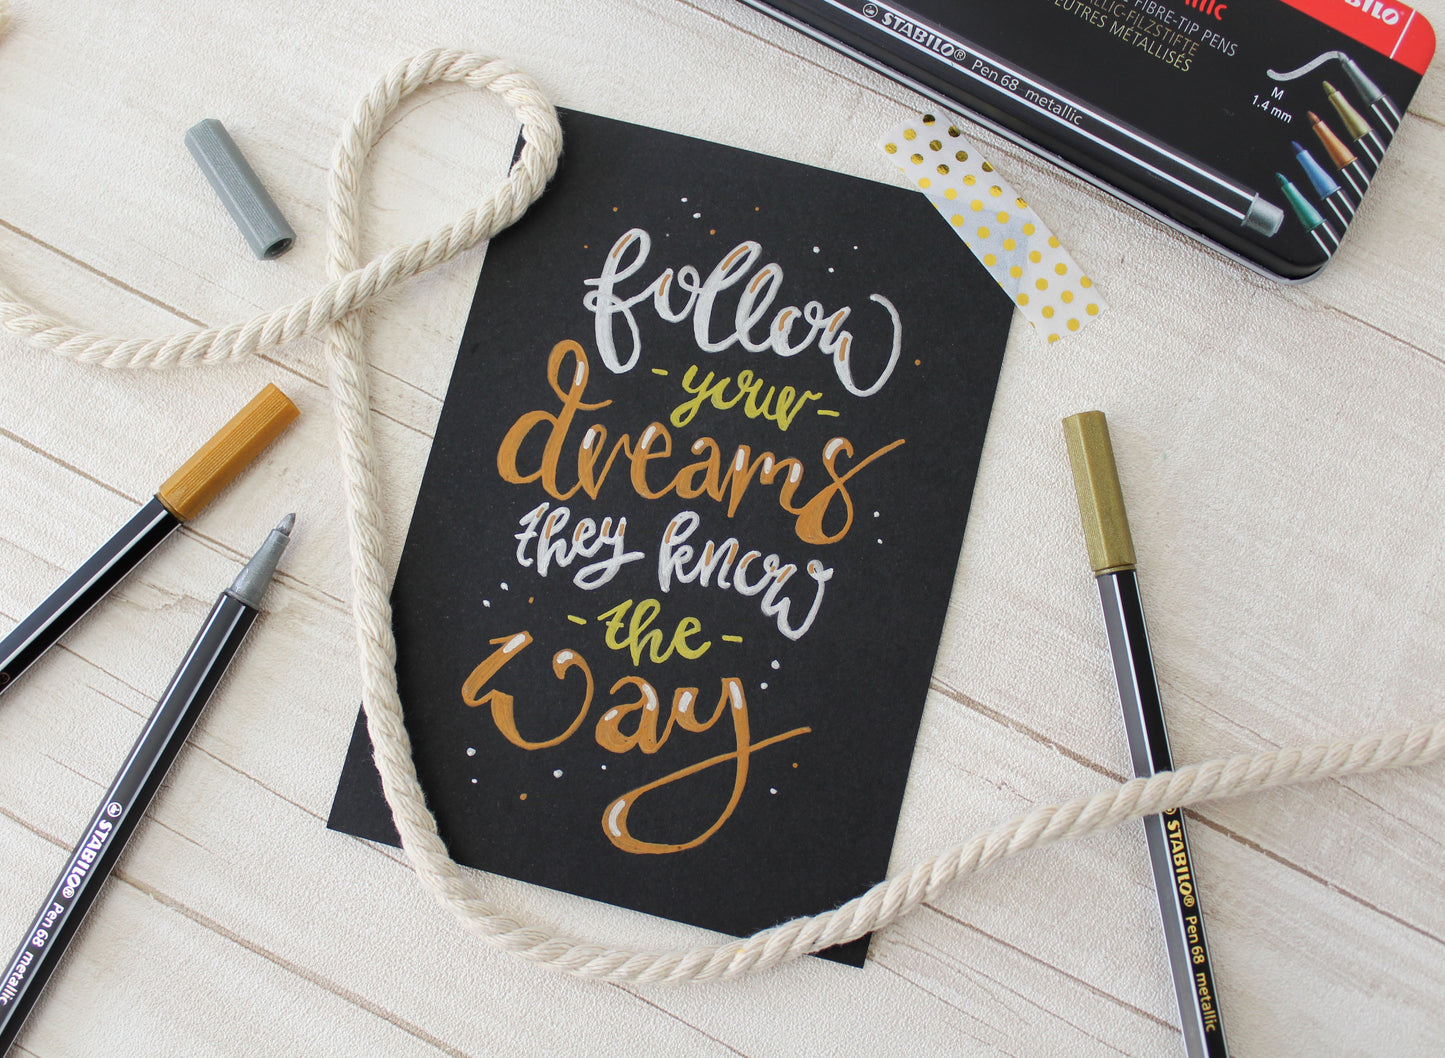 follow
-your-
dreams
they know
-the-
way
STABILO
FIBRE-TIP PENS
METALLIC-FILZSTIFTE
FEUTRES MÉTALLISÉS
STABILO® Pen 68 metallic
M
1.4 mm
STABILO® Pen 68 metallic
STABILO® Pen 68 metallic